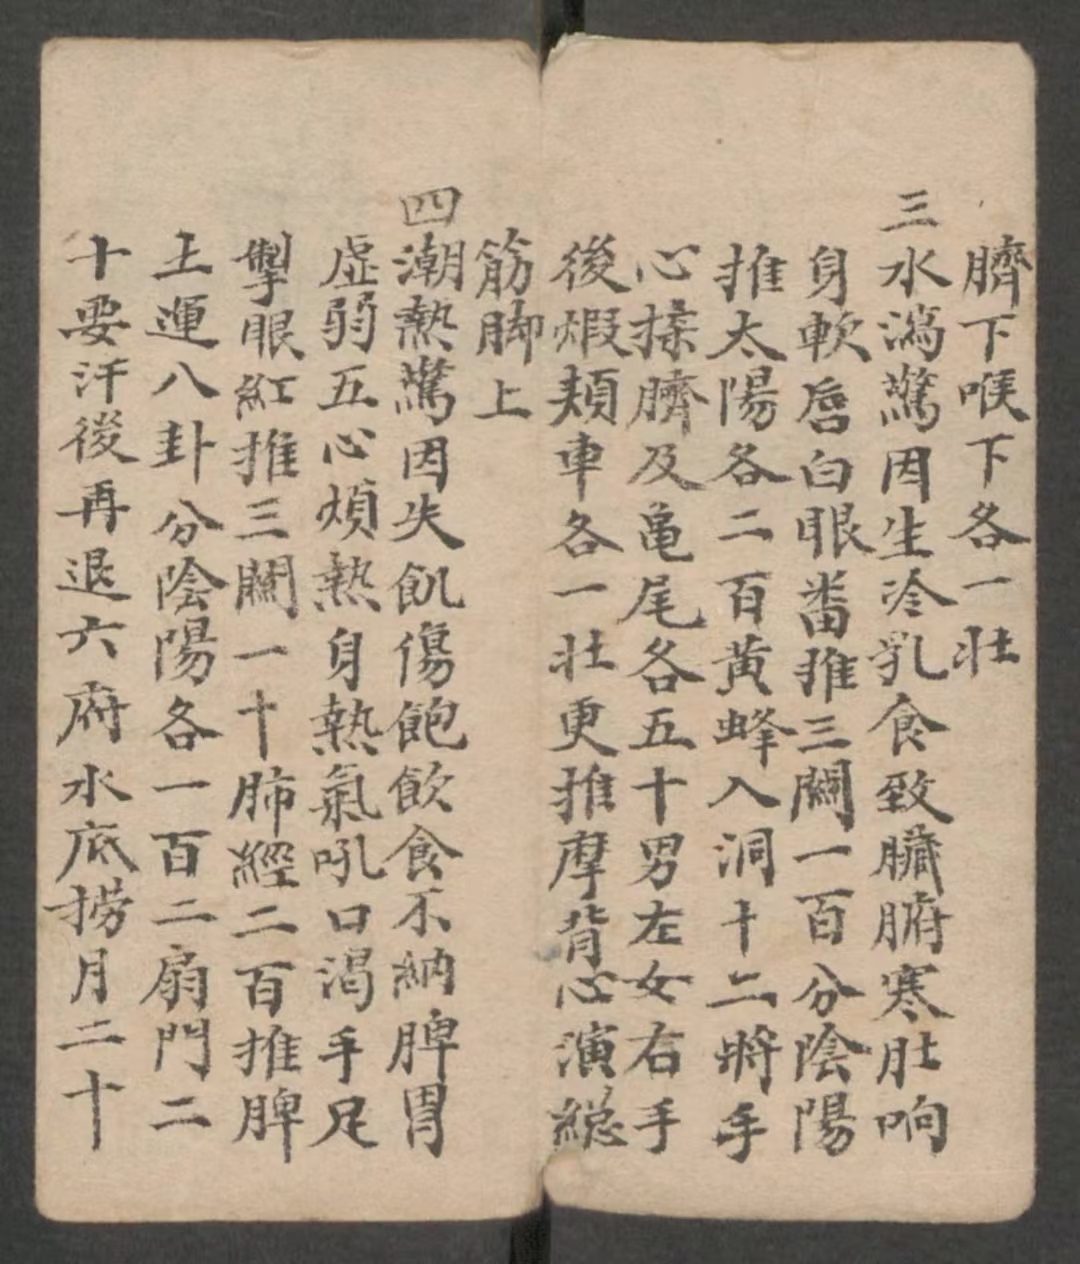 臍下喉下各一壯
三水瀉驚因生冷乳食致臟腑寒肚响
身軟唇白眼番推三關一百分陰陽
推太陽各二百黃蜂入洞十二將手
心揉臍及亀尾各五十男左女右手
後煆頰車各一壯更推摩背心演總
筋脚上
四潮熱驚因失飢傷飽飲食不納脾胃
虛弱五心煩熱身熱氣吼口渴手足
掣眼紅推三關一十肺經二百推脾
土運八卦分陰陽各一百二扇門二
十要汗後再退六府水底撈月二十